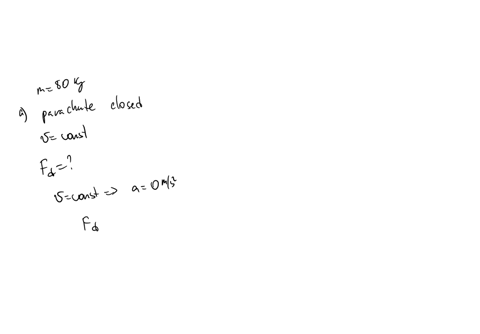 m=80 kg
a) parachute closed
v=const
Fd=?
v=const => a=0 m/s²
Fd